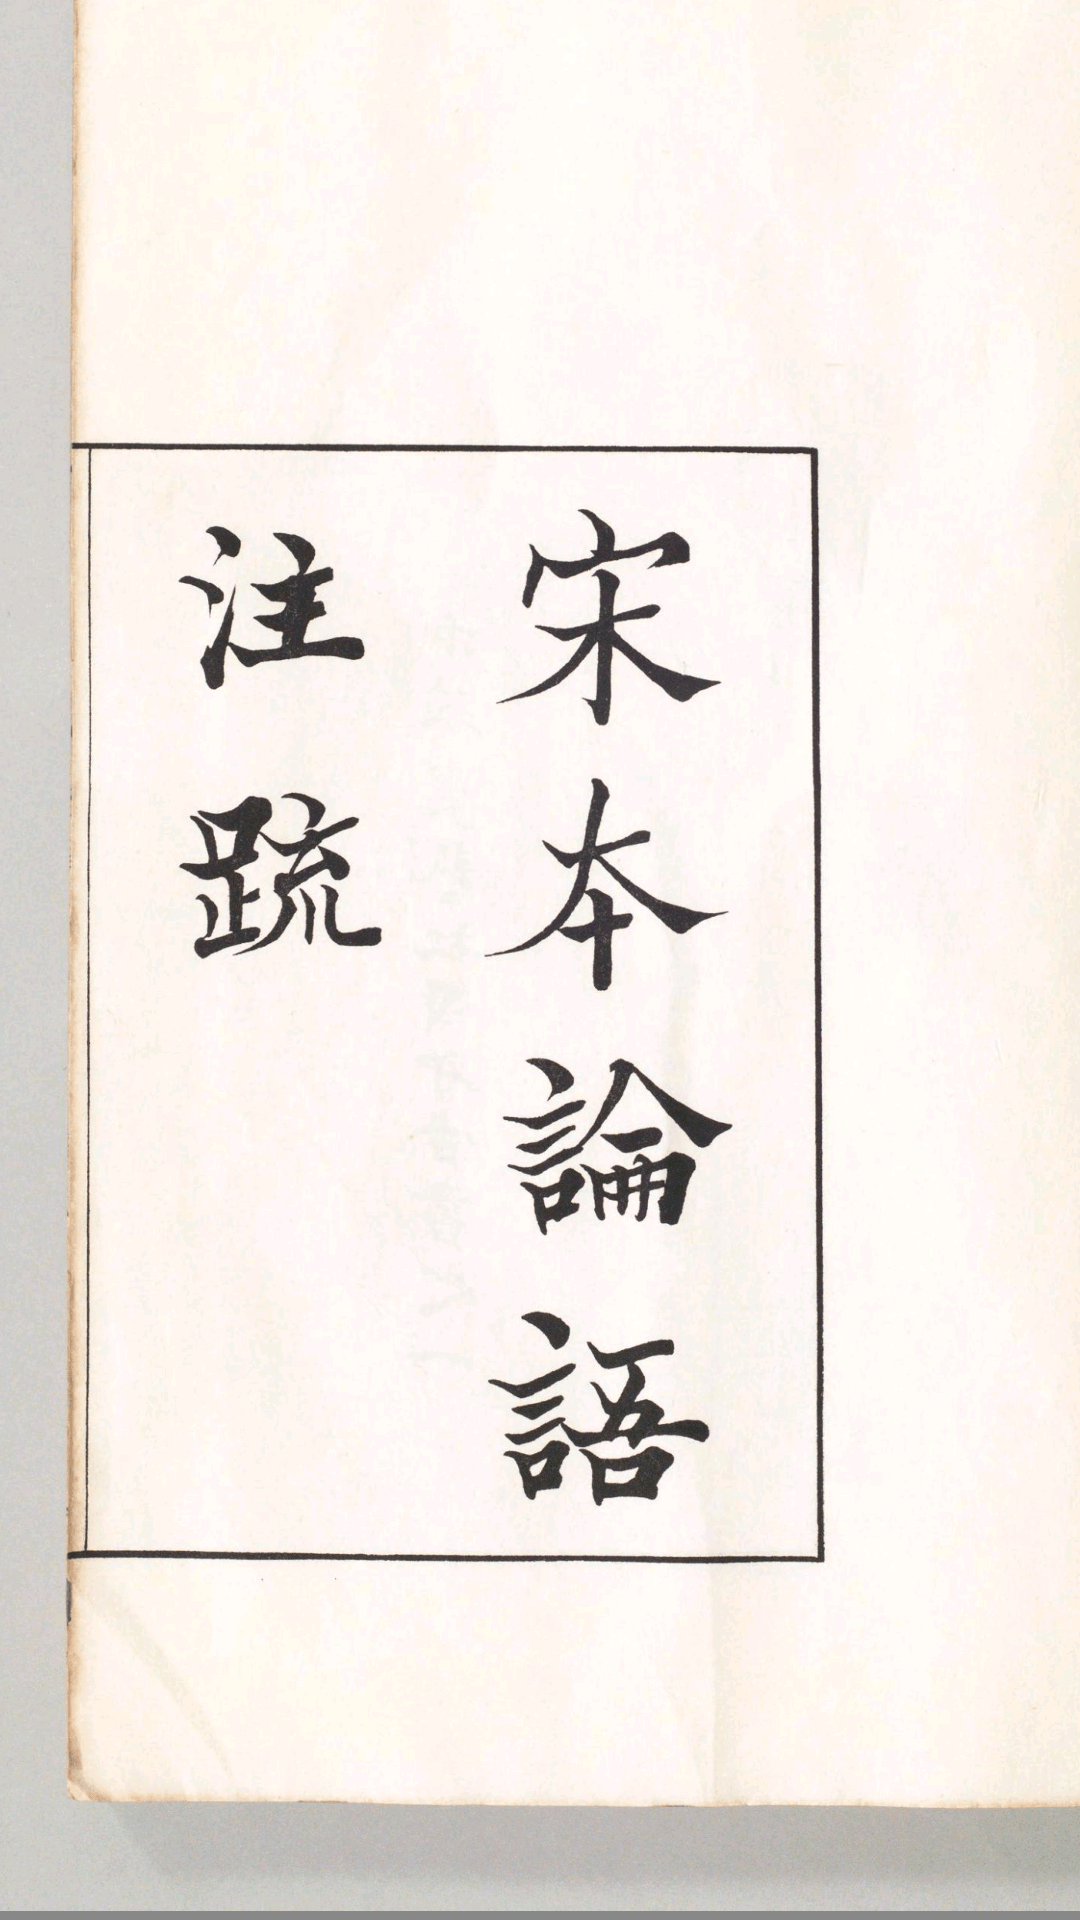 宋本論語
注䟽